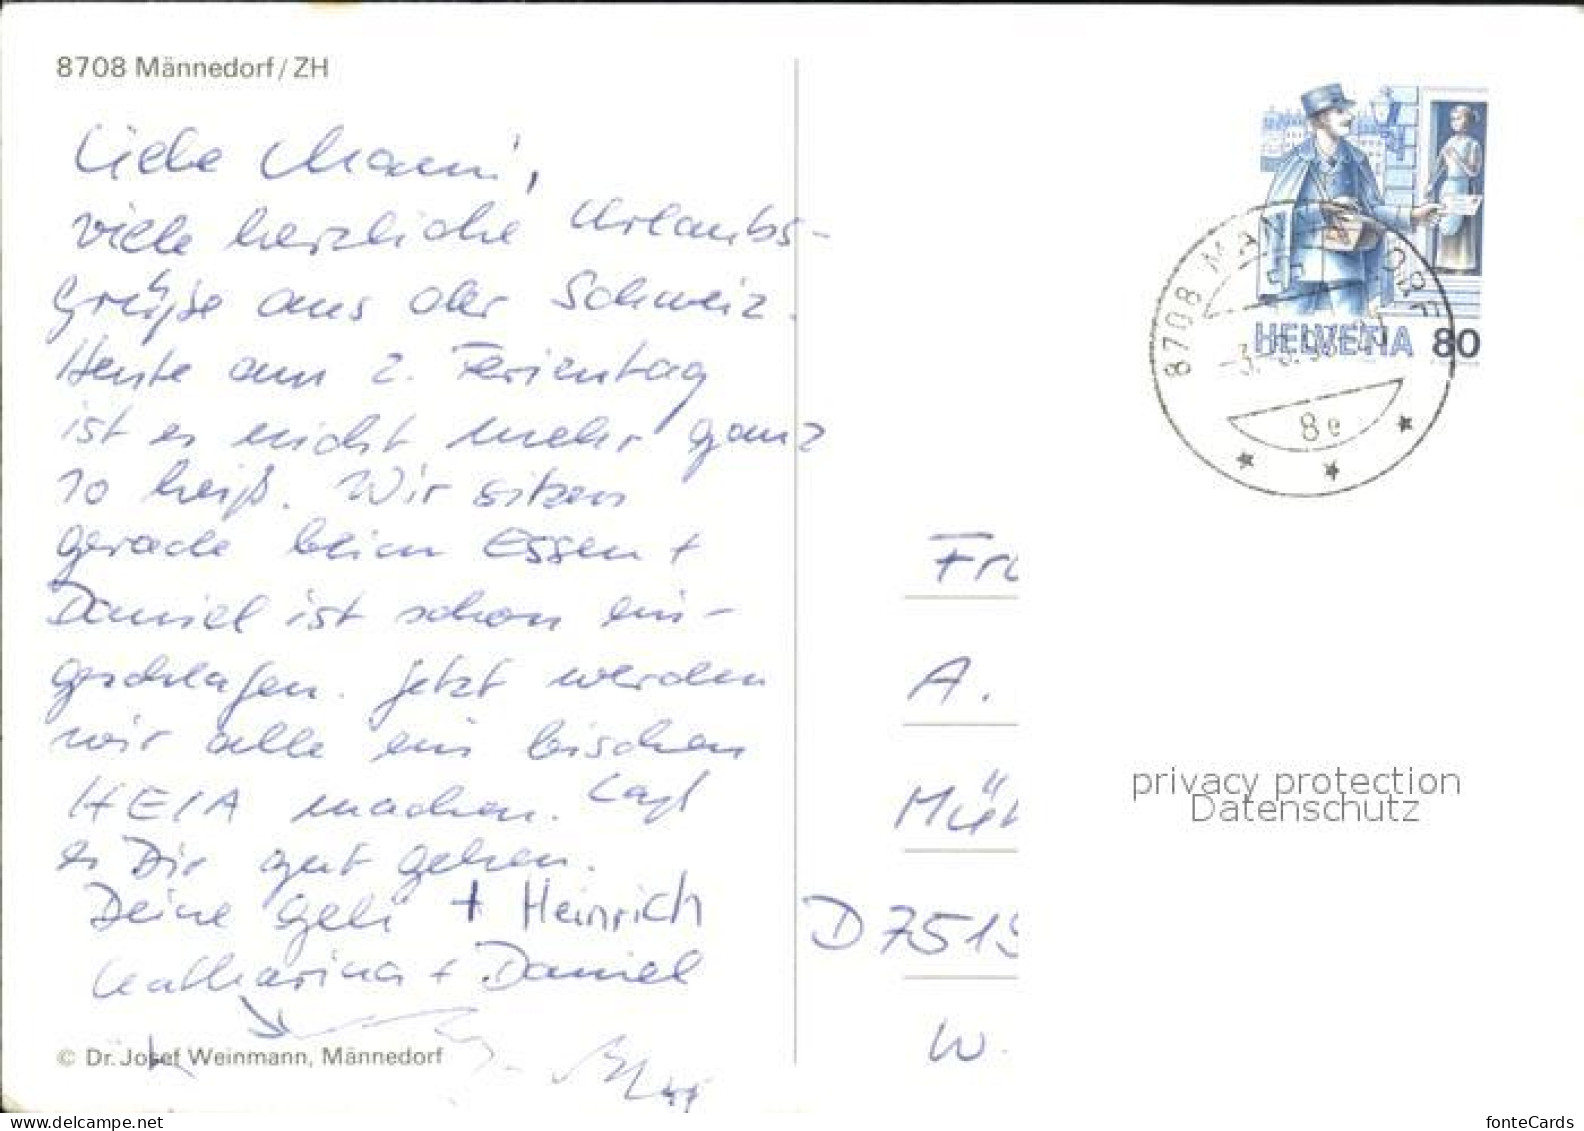 8708 Männedorf / ZH
Liebe Mami,
viele herzliche Urlaubs-
grüße aus der Schweiz.
Heute am 2. Ferientag
ist es nicht mehr ganz
so heiß. Wir sitzen
gerade beim Essen +
Daniel ist schon ein-
geschlafen. Jetzt werden
wir alle ein bischen
HEIA machen. Laß
es Dir gut gehen.
Deine Geli + Heinrich
Katharina + Daniel
© Dr. Josef Weinmann, Männedorf
HELVETIA 80
8708 MÄNNEDORF
8e
A.
D 7519
W.
privacy protection
Datenschutz
www.delcampe.net
fonteCards